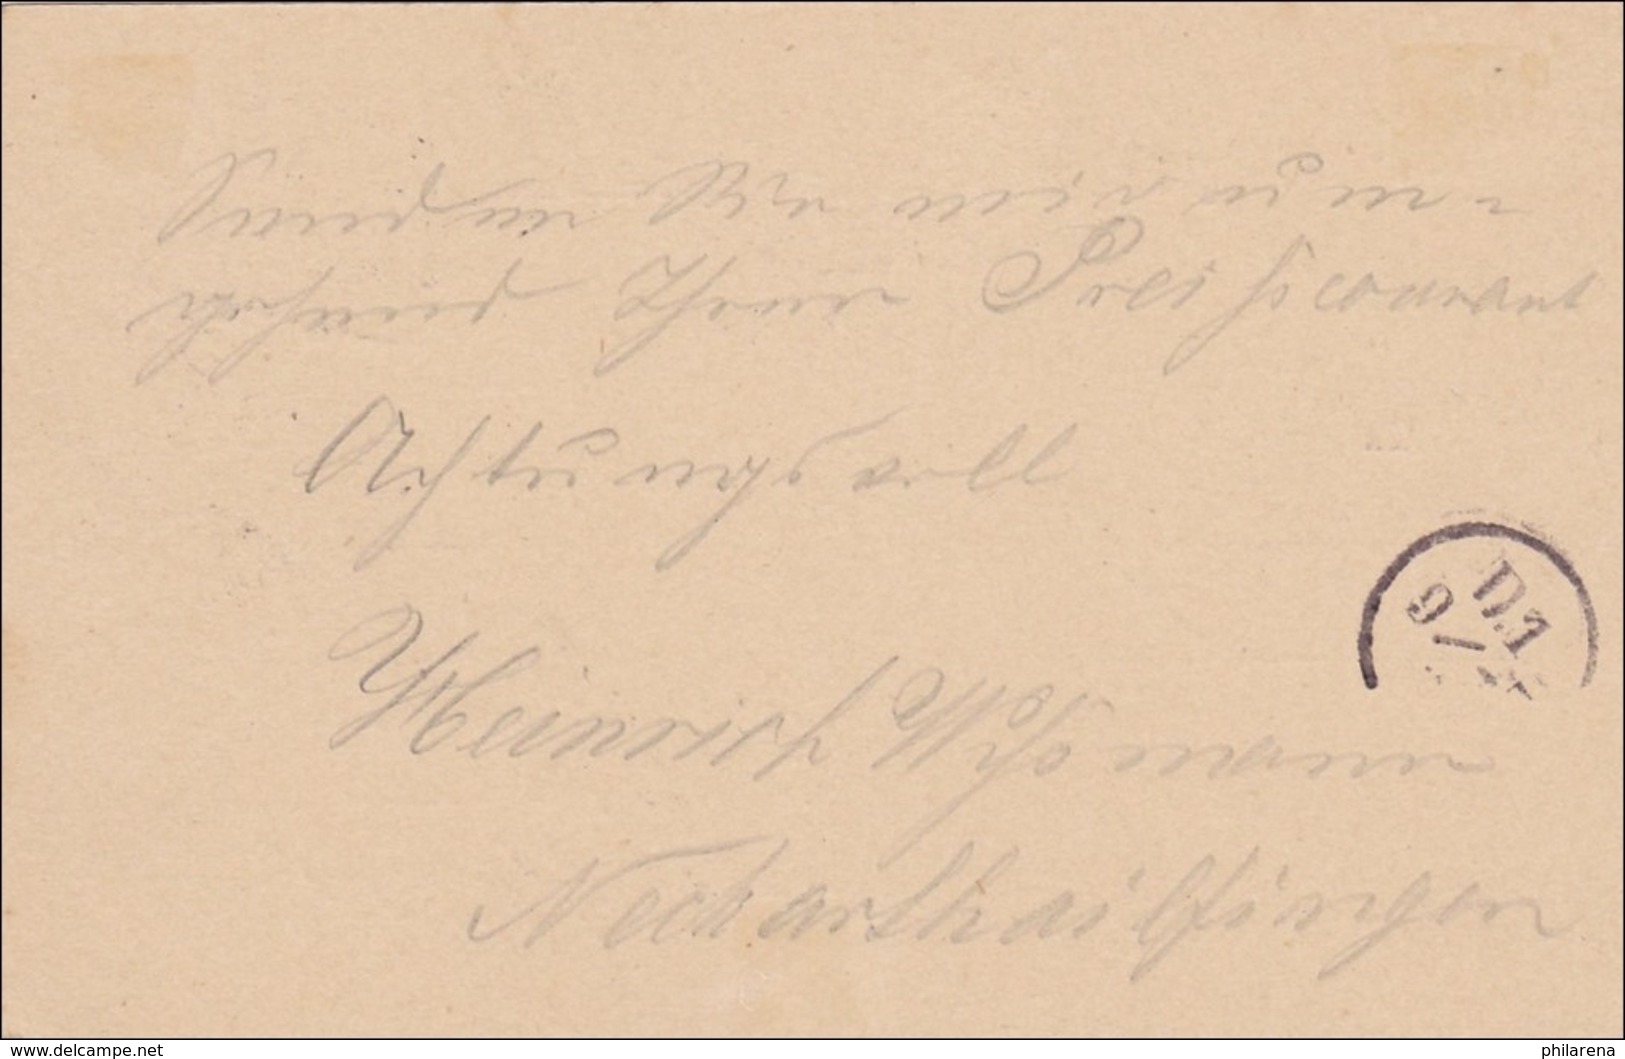 Senden Sie mir um-
gehend Ihren Preisscourant
Achtungsvoll
Heinrich
Neckarthailfingen
D.1
9/
www.delcampe.net
philarena